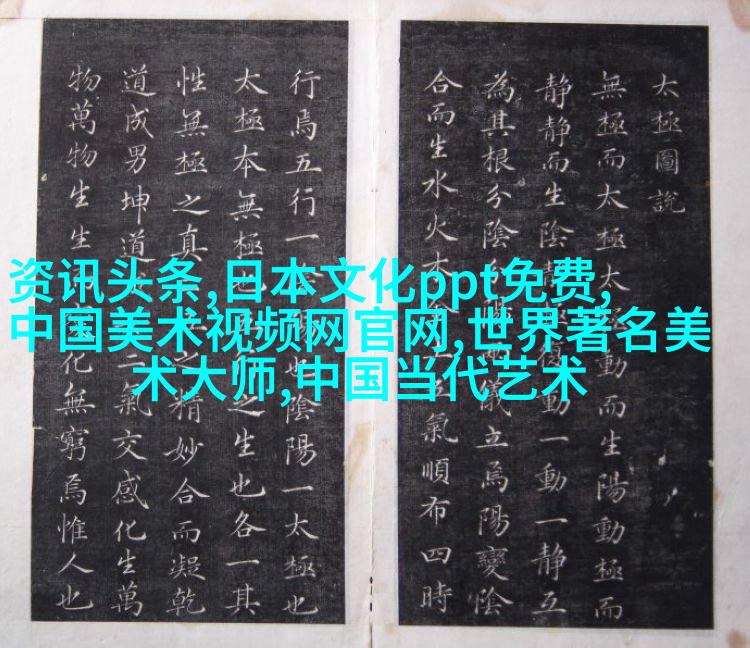 太極圖說
無極而太極太極動而生陽動極而
靜靜而生陰靜極復動一動一靜互
為其根分陰分陽兩儀立焉陽變陰
合而生水火木金土五氣順布四時
行焉五行一陰陽也陰陽一太極也
太極本無極也五行之生也各一其
性無極之真二五之精妙合而凝乾
道成男坤道成女二氣交感化生萬
物萬物生生而變化無窮焉惟人也
资讯头条,日本文化ppt免费,
中国美术视频网官网,世界著名美
术大师,中国当代艺术